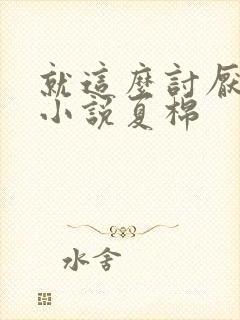 就這麼討厭
小說夏棉
水舍